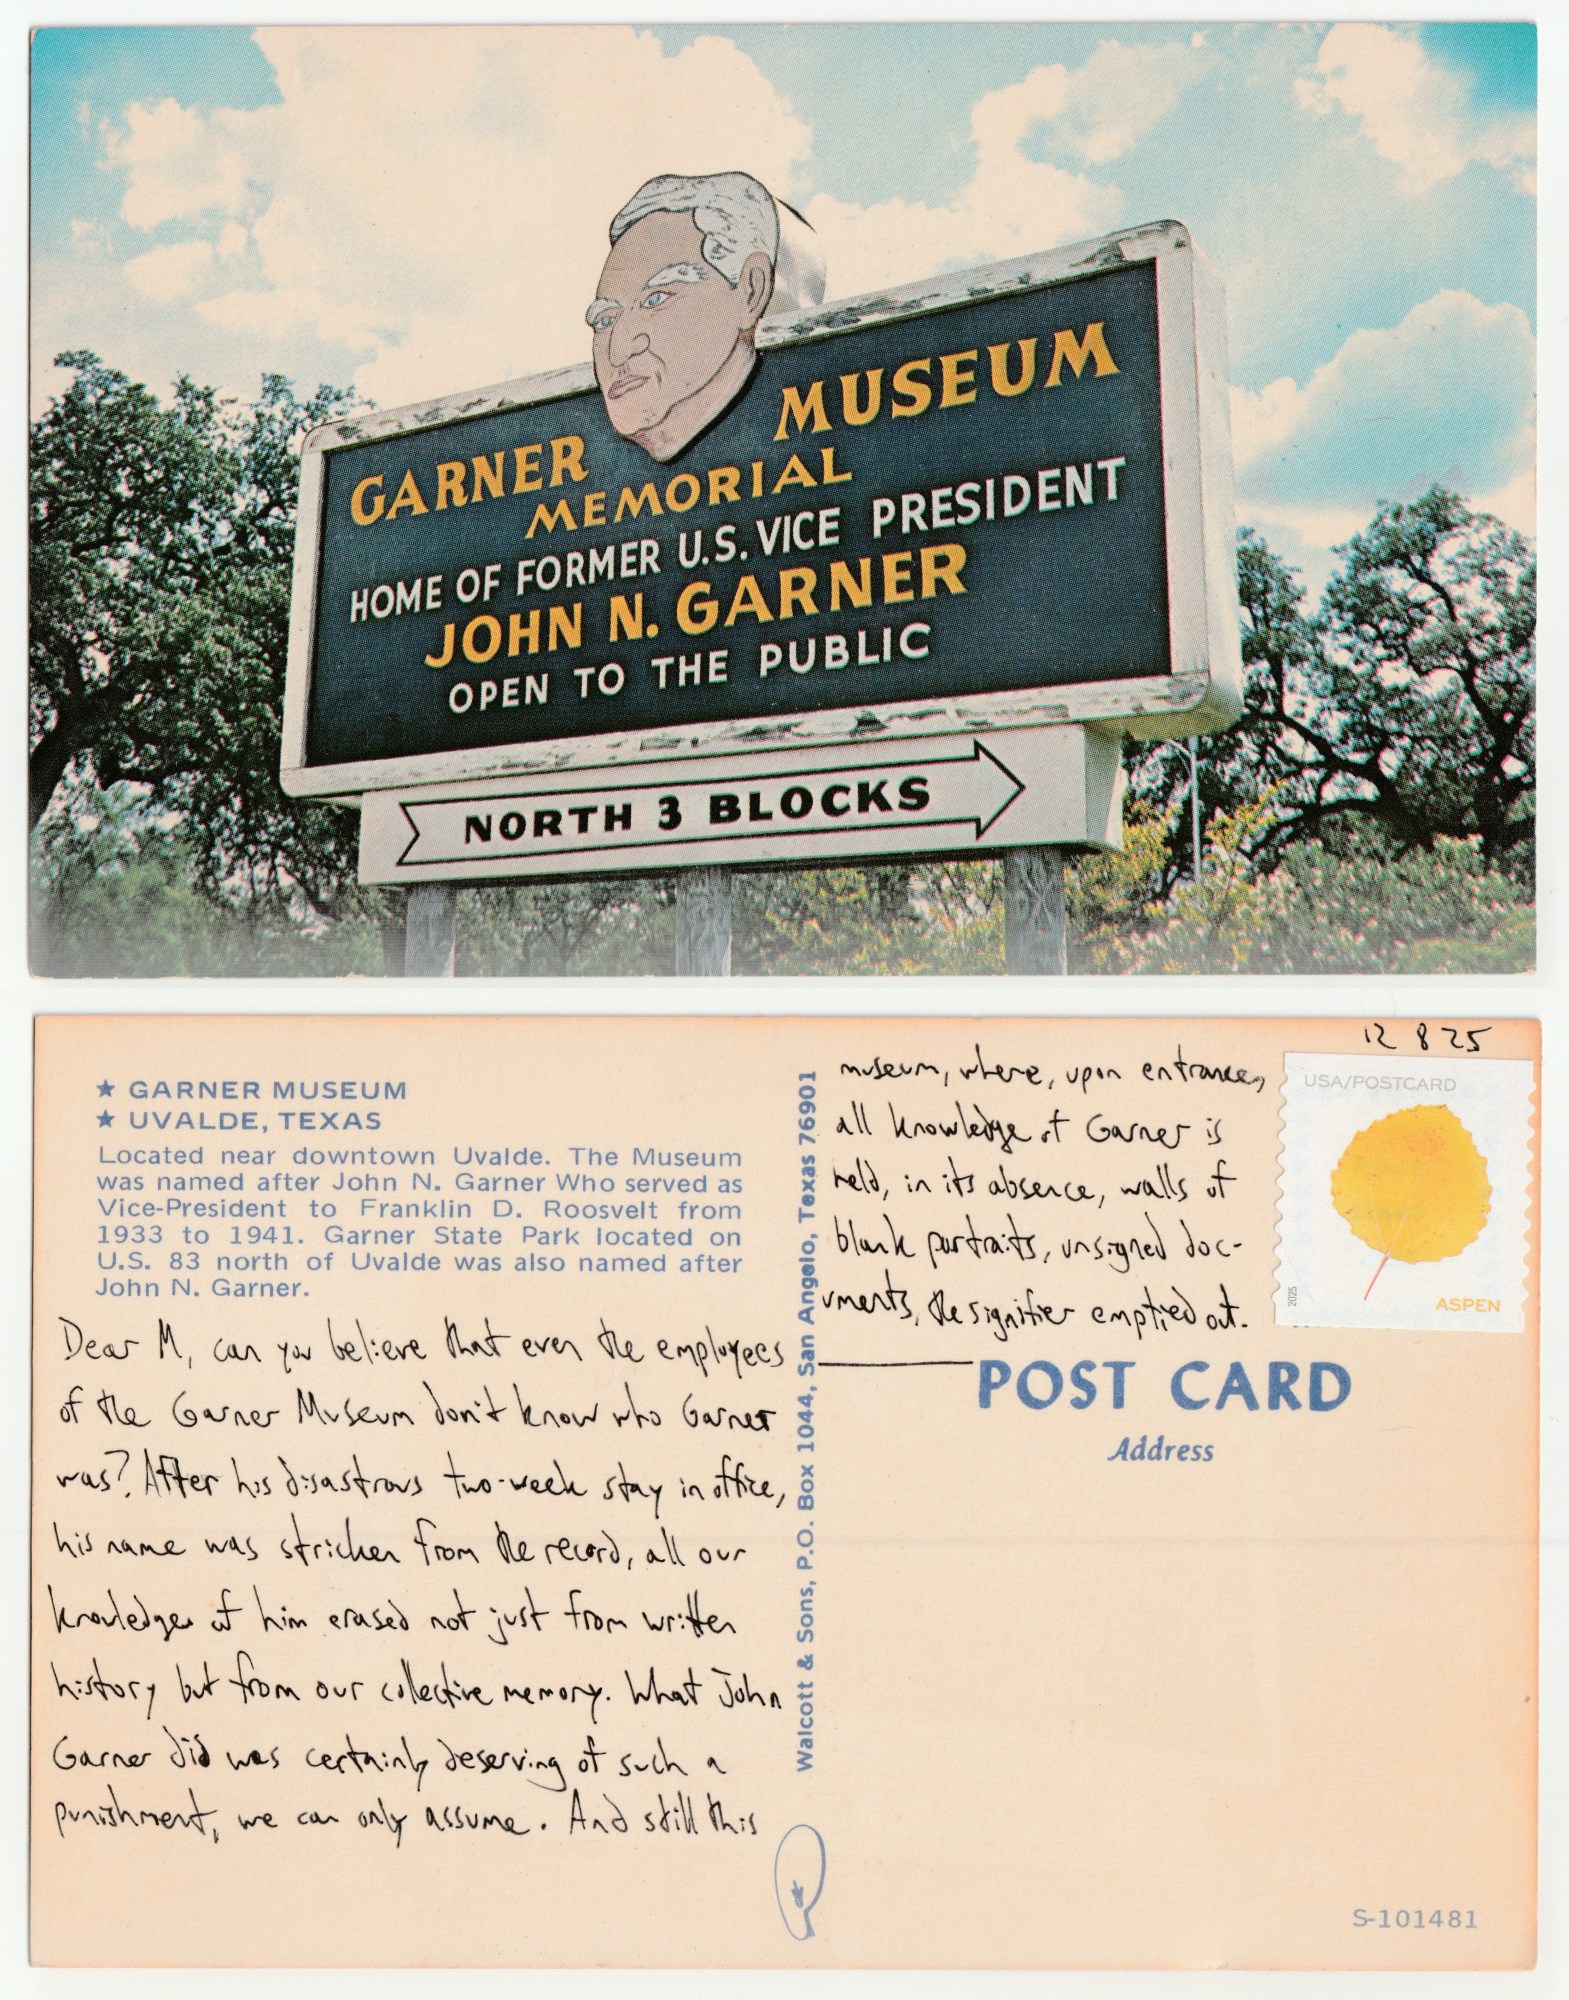 GARNER MUSEUM
MEMORIAL
HOME OF FORMER U.S. VICE PRESIDENT
JOHN N. GARNER
OPEN TO THE PUBLIC
NORTH 3 BLOCKS
★ GARNER MUSEUM
★ UVALDE, TEXAS
Located near downtown Uvalde. The Museum
was named after John N. Garner Who served as
Vice-President to Franklin D. Roosvelt from
1933 to 1941. Garner State Park located on
U.S. 83 north of Uvalde was also named after
John N. Garner.
Dear M, can you believe that even the employees
of the Garner Museum don't know who Garner
was? After his disastrous two-week stay in office,
his name was stricken from the record, all our
knowledge of him erased not just from written
history but from our collective memory. What John
Garner did was certainly deserving of such a
punishment, we can only assume. And still this
museum, where, upon entrance,
all knowledge of Garner is
held, in its absence, walls of
blank portraits, unsigned doc-
uments, the signifier emptied out.
Walcott & Sons, P.O. Box 1044, San Angelo, Texas 76901
12 8 25
USA/POSTCARD
2025
ASPEN
POST CARD
Address
S-101481